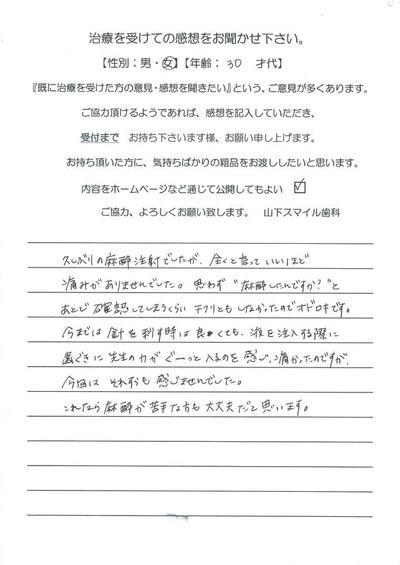 治療を受けての感想をお聞かせ下さい。
【性別：男・女】【年齢：30 才代】
『既に治療を受けた方の意見・感想を聞きたい』という、ご意見が多くあります。
ご協力頂けるようであれば、感想を記入していただき、
受付まで お持ち下さいます様、お願い申し上げます。
お持ち頂いた方に、気持ちばかりの粗品をお渡ししたいと思います。
内容をホームページなど通じて公開してもよい ☑
ご協力、よろしくお願い致します。 山下スマイル歯科
久しぶりの麻酔注射でしたが、全くと言っていいほど
痛みがありませんでした。思わず“麻酔したんですか？”と
あとで確認してしまうくらいチクリともしなかったのでオドロキです。
今までは針を刺す時は良くても、液を注入する際に
歯ぐきに先生の力がぐーっと入るのを感じ、痛かったのですが、
今回はそれすらも感じませんでした。
これなら麻酔が苦手な方も大丈夫だと思います。